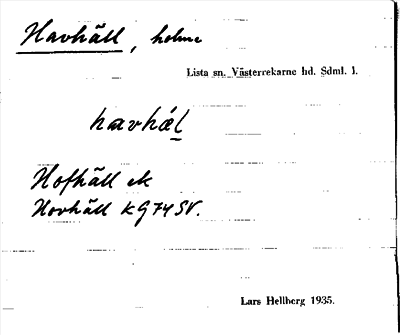 Havhäll, holme
Lista sn. Västerrekarne hd. Sdml. l.
havhä́l
Hofhäll ek
Hovhäll KG 74 SV.
Lars Hellberg 1935.